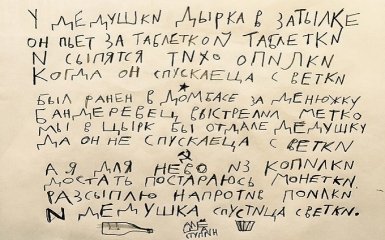 У ДЕДУШКИ ДЫРКА В ЗАТЫЛКЕ
ОН ПЬЕТ ЗА ТАБЛЕТКОЙ ТАБЛЕТКИ
И СЫПЯТСЯ ТИХО ОПИЛКИ
КОГДА ОН СПУСКАЕЦА С ВЕТКИ
БЫЛ РАНЕН В ДОМБАСЕ ЗА ДЕНЮЖКУ
БАНДЕРЕВЕЦ ВЫСТРЕЛИЛ МЕТКО
МЫ В ЦЫРК БЫ ОТДАЛЕ ДЕДУШКУ
ДА ОН НЕ СПУСКАЕЦА С ВЕТКИ
А Я ДЛЯ НЕВО ИЗ КОПИЛКИ
ДОСТАТЬ ПОСТАРАЮСЬ МОНЕТКИ.
РАССЫПЛЮ НАПРОТИВ ПОИЛКИ
И ДЕДУШКА СПУСТИЦА С ВЕТКИ.